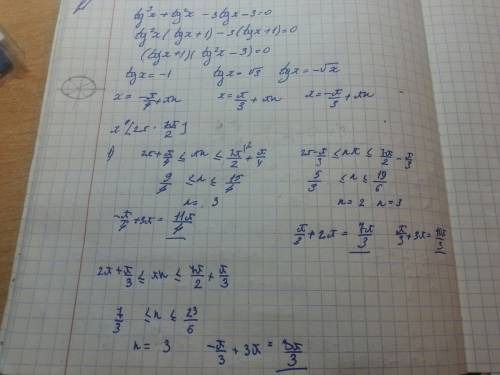 tg³x + tg²x - 3tgx - 3 = 0
tg²x(tgx+1) - 3(tgx+1) = 0
(tgx+1)(tg²x-3) = 0
tgx = -1 tgx = √3 tgx = -√x
x = -π/4 + πn x = π/3 + πn x = -π/3 + πn
x ∈ [2π; 7π/2]
1) 2π + π/4 ≤ πn ≤ 7π/2 + π/4 2π - π/3 ≤ πn ≤ 7π/2 - π/3
9/4 ≤ n ≤ 15/4 5/3 ≤ n ≤ 19/6
n = 3 n = 2 n = 3
-π/4 + 3π = 11π/4 π/3 + 2π = 7π/3 π/3 + 3π = 10π/3
2π + π/3 ≤ πn ≤ 7π/2 + π/3
7/3 ≤ n ≤ 23/6
n = 3 -π/3 + 3π = 8π/3